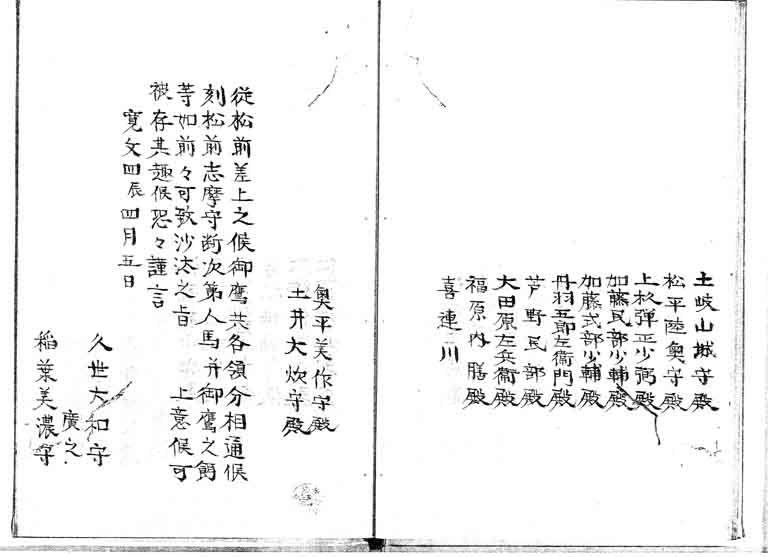 土岐山城守殿
松平陸奥守殿
上杉弾正少弼殿
加藤民部少輔殿
加藤式部少輔殿
丹羽五郎左衛門殿
芦野民部殿
大田原左兵衛殿
福原内膳殿
喜連川
奥平美作守殿
土井大炊守殿
従松前差上之候御鷹共各領分相通候
刻松前志摩守断次第人馬并御鷹之餌
等如前々可致沙汰之旨 上意候可
被存其趣候恐々謹言
寛文四辰四月五日
久世大和守
廣之
稲葉美濃守